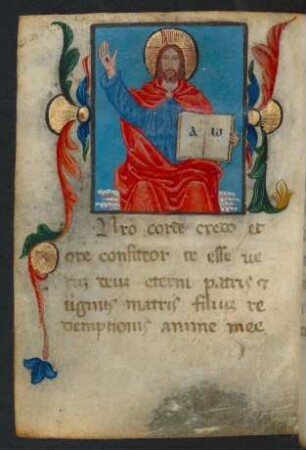 A ω
Uro corde credo et
ore confiteor te esse ue
rus deus eterni patris &
uignis matris filius re
demptionis anime mee